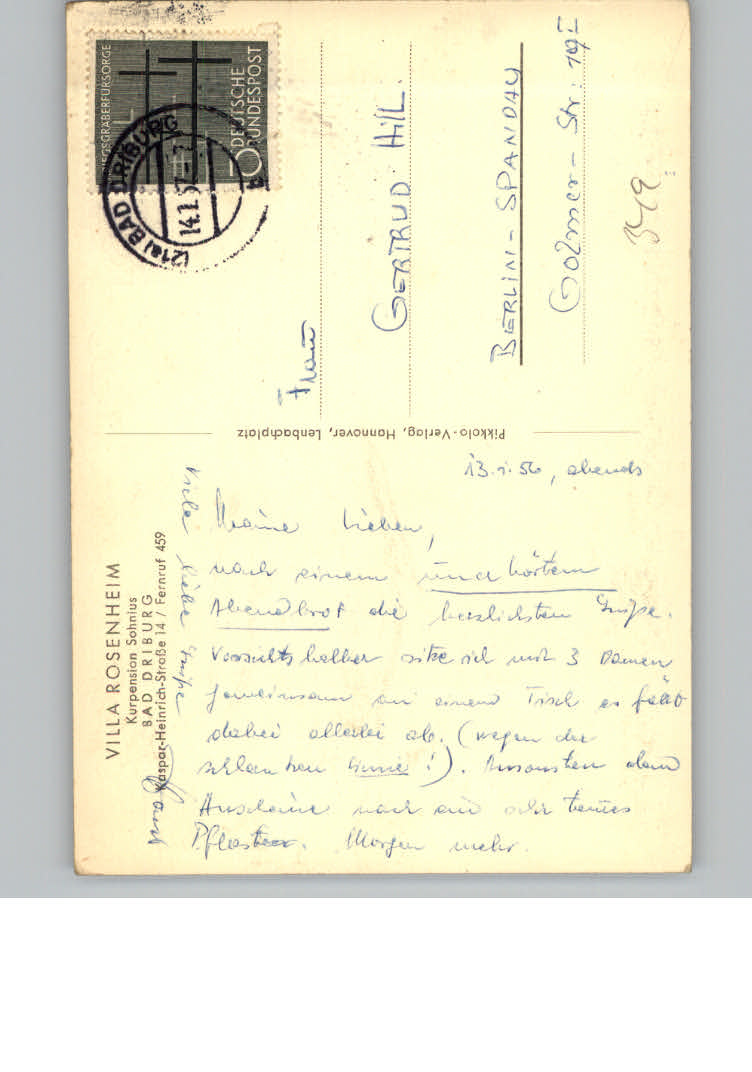 VILLA ROSENHEIM
Kurpension Sohnius
BAD DRIBURG
Kaspar-Heinrich-Straße 14 / Fernruf 459
13.1.56, abends
Meine Lieben,
nach einem unerhörten
Abendbrot die herzlichsten Grüße.
Vorsichtshalber sitze ich mit 3 Damen
gemeinsam an einem Tisch es fällt
dabei allerlei ab. (wegen der
schlanken Linie!). Ansonsten dem
Anscheine nach ein sehr teures
Pflaster. Morgen mehr.
Viele liebe Grüße
Pikkolo-Verlag, Hannover, Lenbachplatz
KRIEGSGRÄBERFÜRSORGE
10
DEUTSCHE
BUNDESPOST
(21a) BAD DRIBURG
14.1.57
a
Frau
GERTRUD HILL.
BERLIN-SPANDAU
Golmer-Str: 19I